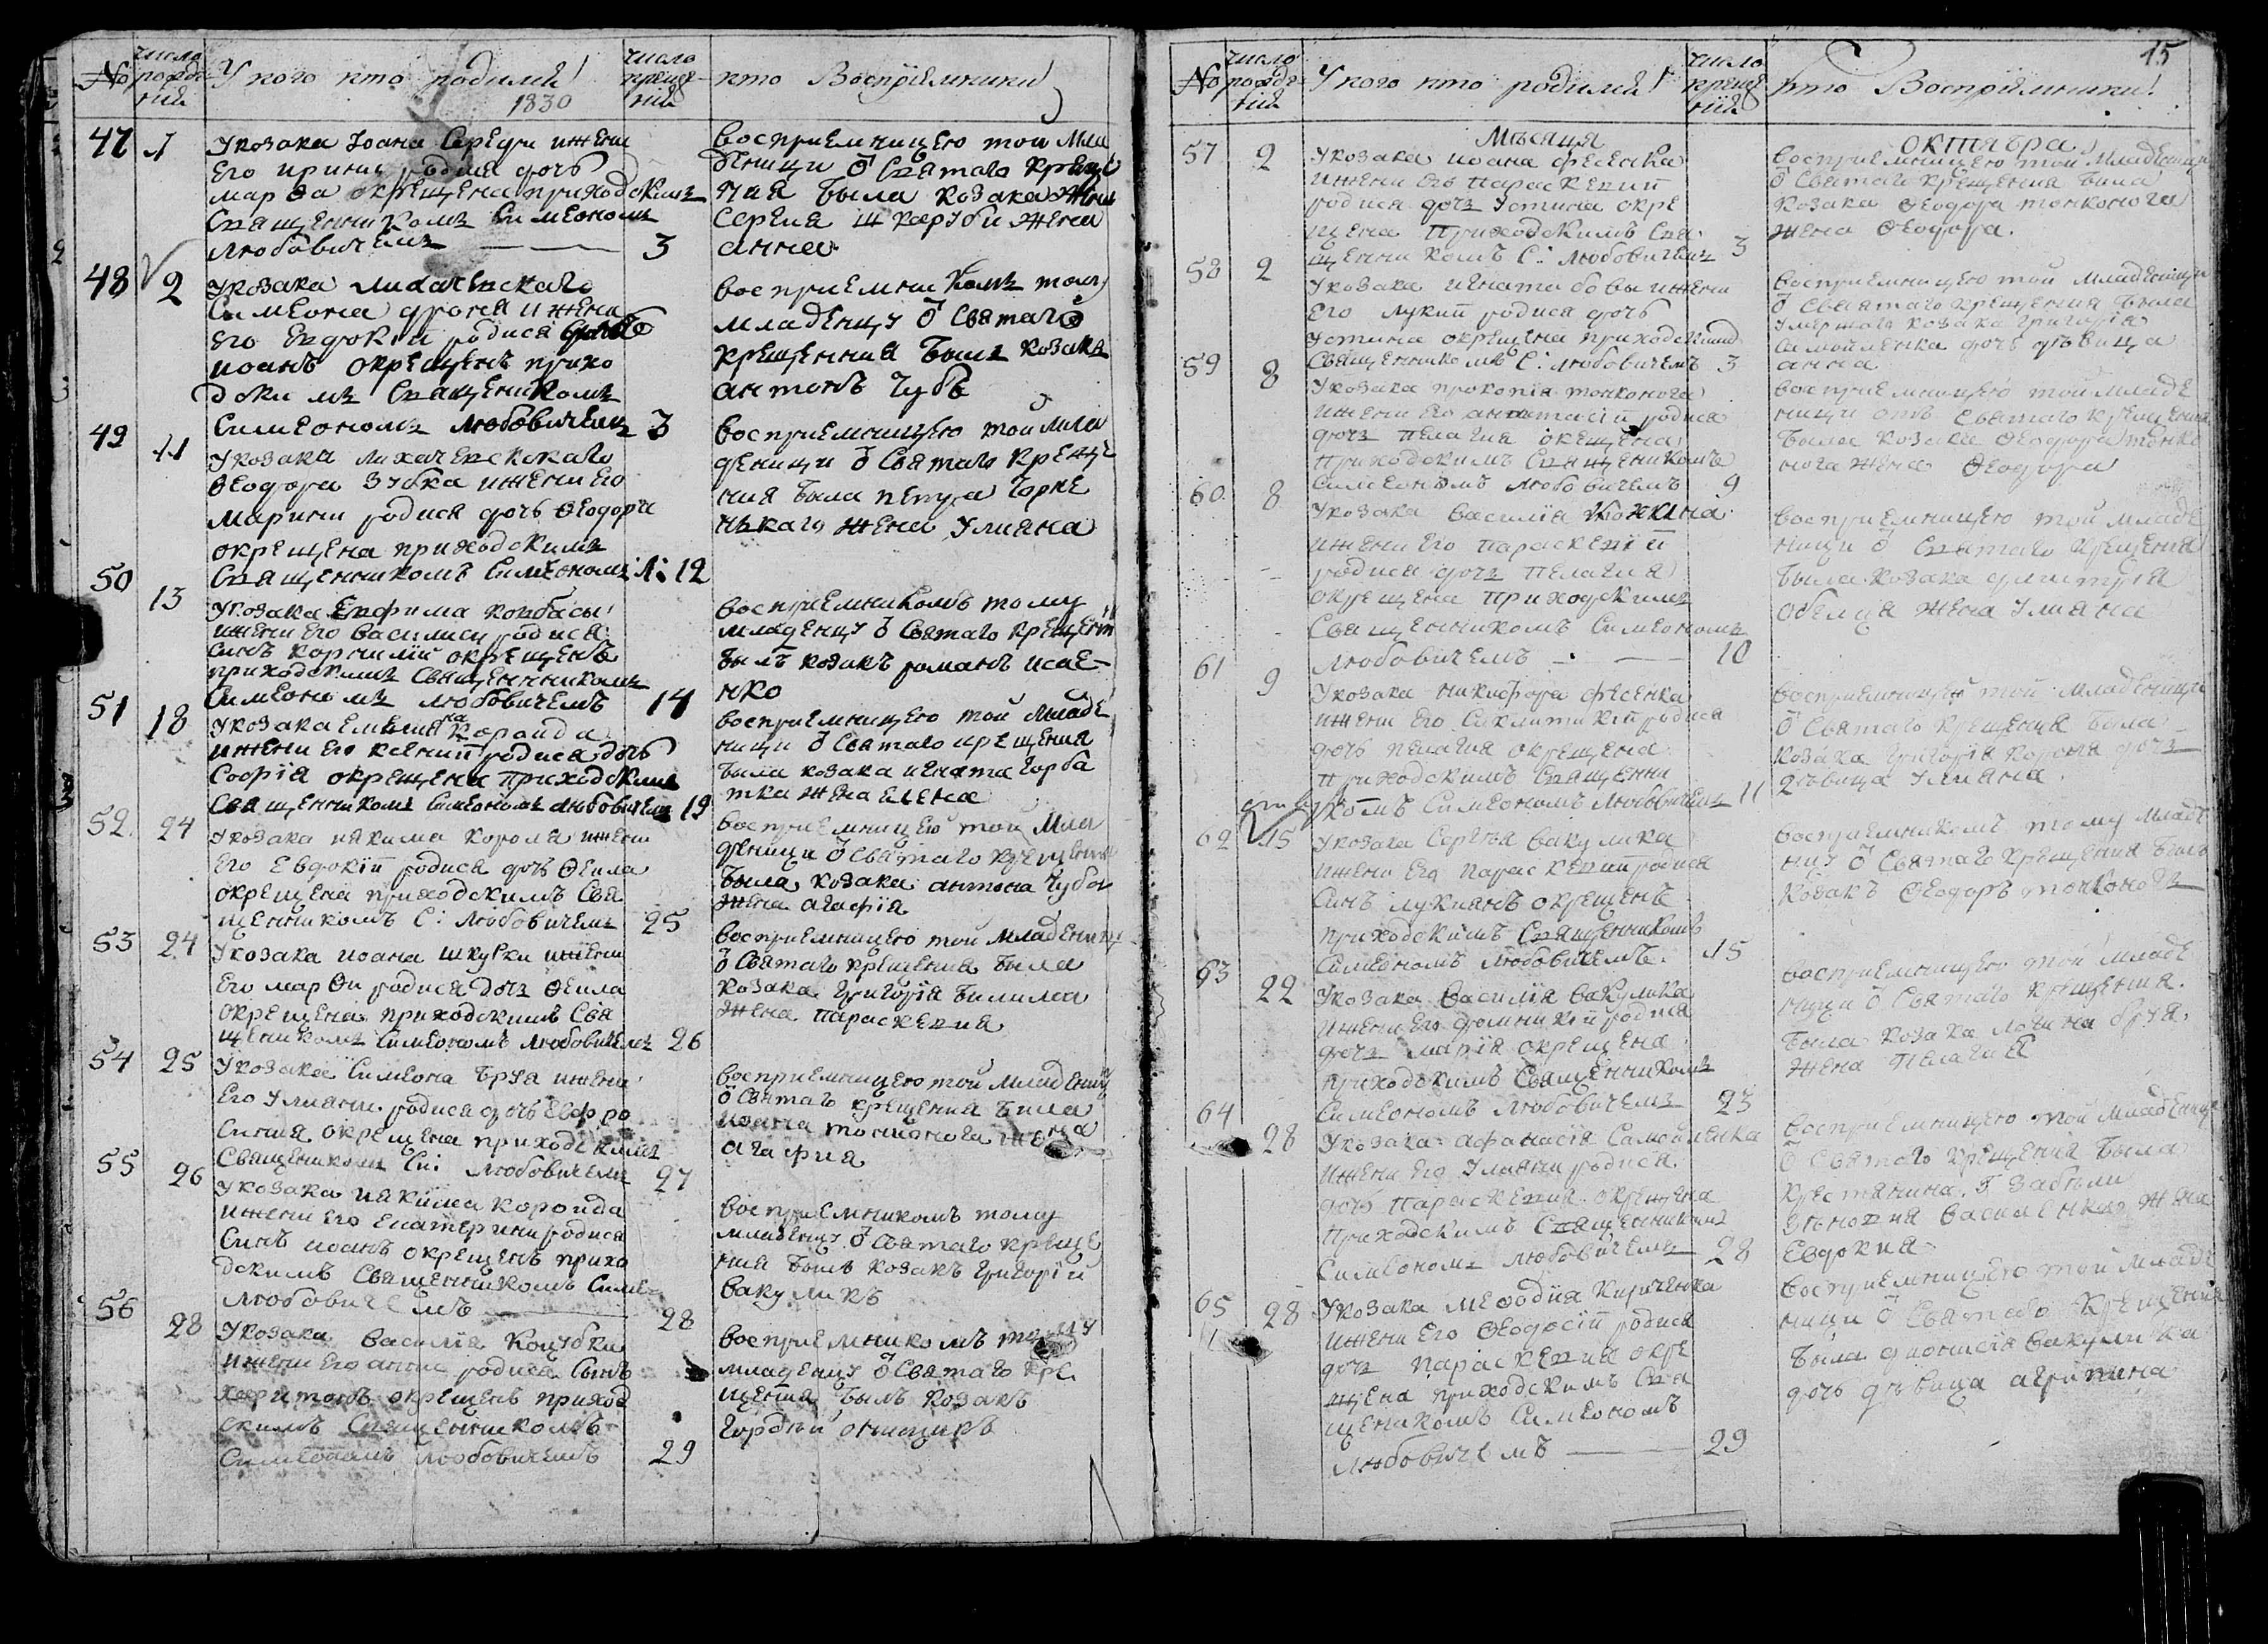 №
число рожденій
У кого кто родился
1830
число крещеній
кто Воспріемники
47 1
У козака Іоана Середи и жени
его ирини родися дочъ
марѳа окрещена приходскимъ
Священникомъ Симеономъ
Любовичемъ 3
восприемницею той мла
денци ѿ Святаго креще
ния была козака
Сергея шкарубы жена
анна
48 2
У козака лихачевскаго
Симеона дроня и жени
его Евдокіи родися
иоанъ окрещенъ прихо
дскимъ Священикомъ
Симеономъ Любовичемъ 3
восприемникомъ тому
младенцу ѿ Святаго
крещенния былъ козакъ
антонъ Чубъ
49 11
У козака лихачевскаго
Ѳеодора Зубка и жени его
Марини родися дочъ Ѳеодора
окрещена приходскимъ
Священникомъ Симеономъ Л: 12
восприемницею той мла
деници ѿ Святаго креще
ния была петра Чорне
нькаго жена Улияна
50 13
У козака Евфима ковбасы
и жени его василиси родися
синъ корнилий окрещенъ
приходскимъ Священникомъ
Симеономъ Любовичемъ 14
восприемникомъ тому
младенцу ѿ Святаго крещения
былъ козакъ романъ исае-
нко
51 18
У козака емелияна Коропда
и жени его ксении родися дочъ
Софія окрещена приходскимъ
Священникомъ Симеономъ Любовичемъ 19
восприемницею той младе
ници ѿ Святаго крещения
была козака игната горба
тка жена елена
52 24
У козака иякима короля и жени
его Евдокіи родися дочъ Ѳекла
окрещена приходскимъ Свя
щенникомъ С: Любовичемъ 25
восприемницею той мла
деници ѿ Святаго крещения
была козака антона Чуба
жена агафія
53 24
У козака иоана шкурки и жени
его марѳи родися дочъ Ѳекла
окрещена приходскимъ Свя
щеникомъ Симеономъ Любовичемъ 26
восприемницею той младеници
ѿ Святаго крещения была
козака Григорія билима
жена параскевия
54 25
У козака Симеона Бруя и жени
его Улияни родися дочъ Евфро
синия окрещена приходскимъ
Священикомъ Си: Любовичемъ 27
восприемницею той младениц
ѿ Святаго крещения была
иоана тонконога жена
агафия
55 26
У козака иякима Коропда
и жени его екатерини родися
Синъ иоанъ окрещенъ прихо
дскимъ Священникомъ Симе
Любовичемъ 28
восприемникомъ тому
младенцу ѿ Святаго креще
ния былъ козакъ Григорій
вакуликъ
56 28
У козака василія Коцубки
и жени его анни родися Синъ
харитонъ окрещенъ приход
скимъ Священникомъ
Симеономъ Любовичемъ 29
восприемникомъ тому
младенцу ѿ Святаго кре
щения былъ козакъ
гордѣй онищикъ
15
№
число рожденій
У кого кто родился
число крещеній
кто Воспріемники
Мѣсяця октября
57 2
У козака иоана фесенка
и жени его параскевии
родися дочъ Устина окре
щена приходскимъ Свя
щенникомъ С: Любовичемъ 3
восприемницею той младеници
ѿ Святаго крещения была
козака Ѳеодора тонконога
жена Ѳеодора
58 2
У козака игната бовы и жени
его лукии родися дочъ
Устина окрещена приходскимъ
Священникомъ С: Любовичемъ 3
восприемницею той младеници
ѿ Святаго крещения была
умершаго козака Григорія
Самойленка дочъ дѣвица
анна
59 8
У козака прокопія тонконога
и жени его анастасіи родися
дочъ пелагия окрещена
приходскимъ Священикомъ
Симеономъ Любовичемъ 9
восприемницею той младе
ници отъ Святаго крещения
была козака Ѳеодора тонко
нога жена Ѳеодора
60 8
У козака василія Кожина
и жени его параскевіи
родися дочъ пелагия
окрещена приходскимъ
Священникомъ Симеономъ
Любовичемъ 10
восприемницею той младе
ници ѿ Святаго крещения
была козака дмитрія
обелця жена Улияна
61 9
У козака никифора фесенка
и жени его Синклитикіи родися
дочъ пелагия окрещена
приходскимъ Священни
комъ Симеономъ Любовичемъ 11
восприемницею той младеници
ѿ Святаго крещения была
козака Григорія короля дочъ
дѣвица Улияна
62 15
У козака Сергѣя вакулика
и жени его параскевии родися
Синъ лукиянъ окрещенъ
приходскимъ Священникомъ
Симеономъ Любовичемъ 15
восприемникомъ тому младе
нцу ѿ Святаго крещения былъ
козакъ Ѳеодоръ тонконогъ
63 22
У козака василія вакулика
и жени его домникіи родися
дочъ марія окрещена
приходскимъ Священникомъ
Симеономъ Любовичемъ 23
восприемницею той младе
ници ѿ Святаго крещения
была козака логина бруя
жена пелагия
64 28
У козака афанасія Самойленка
и жени его Улияни родися
дочъ параскевия окрещена
приходскимъ Священникомъ
Симеономъ Любовичемъ 28
восприемницею той младеници
ѿ Святаго крещения была
крестянина Г Забѣлы
зѣновия василенка жена
Евдокия
65 28
У козака меѳодия Кириченка
и жени его Ѳеодосіи родися
дочъ параскевия окре
щена приходскимъ Свя
щеникомъ Симеономъ
Любовичемъ 29
восприемницею той младе
ници ѿ Святаго крещения
была дионисія вакулика
дочъ дѣвица агрипина